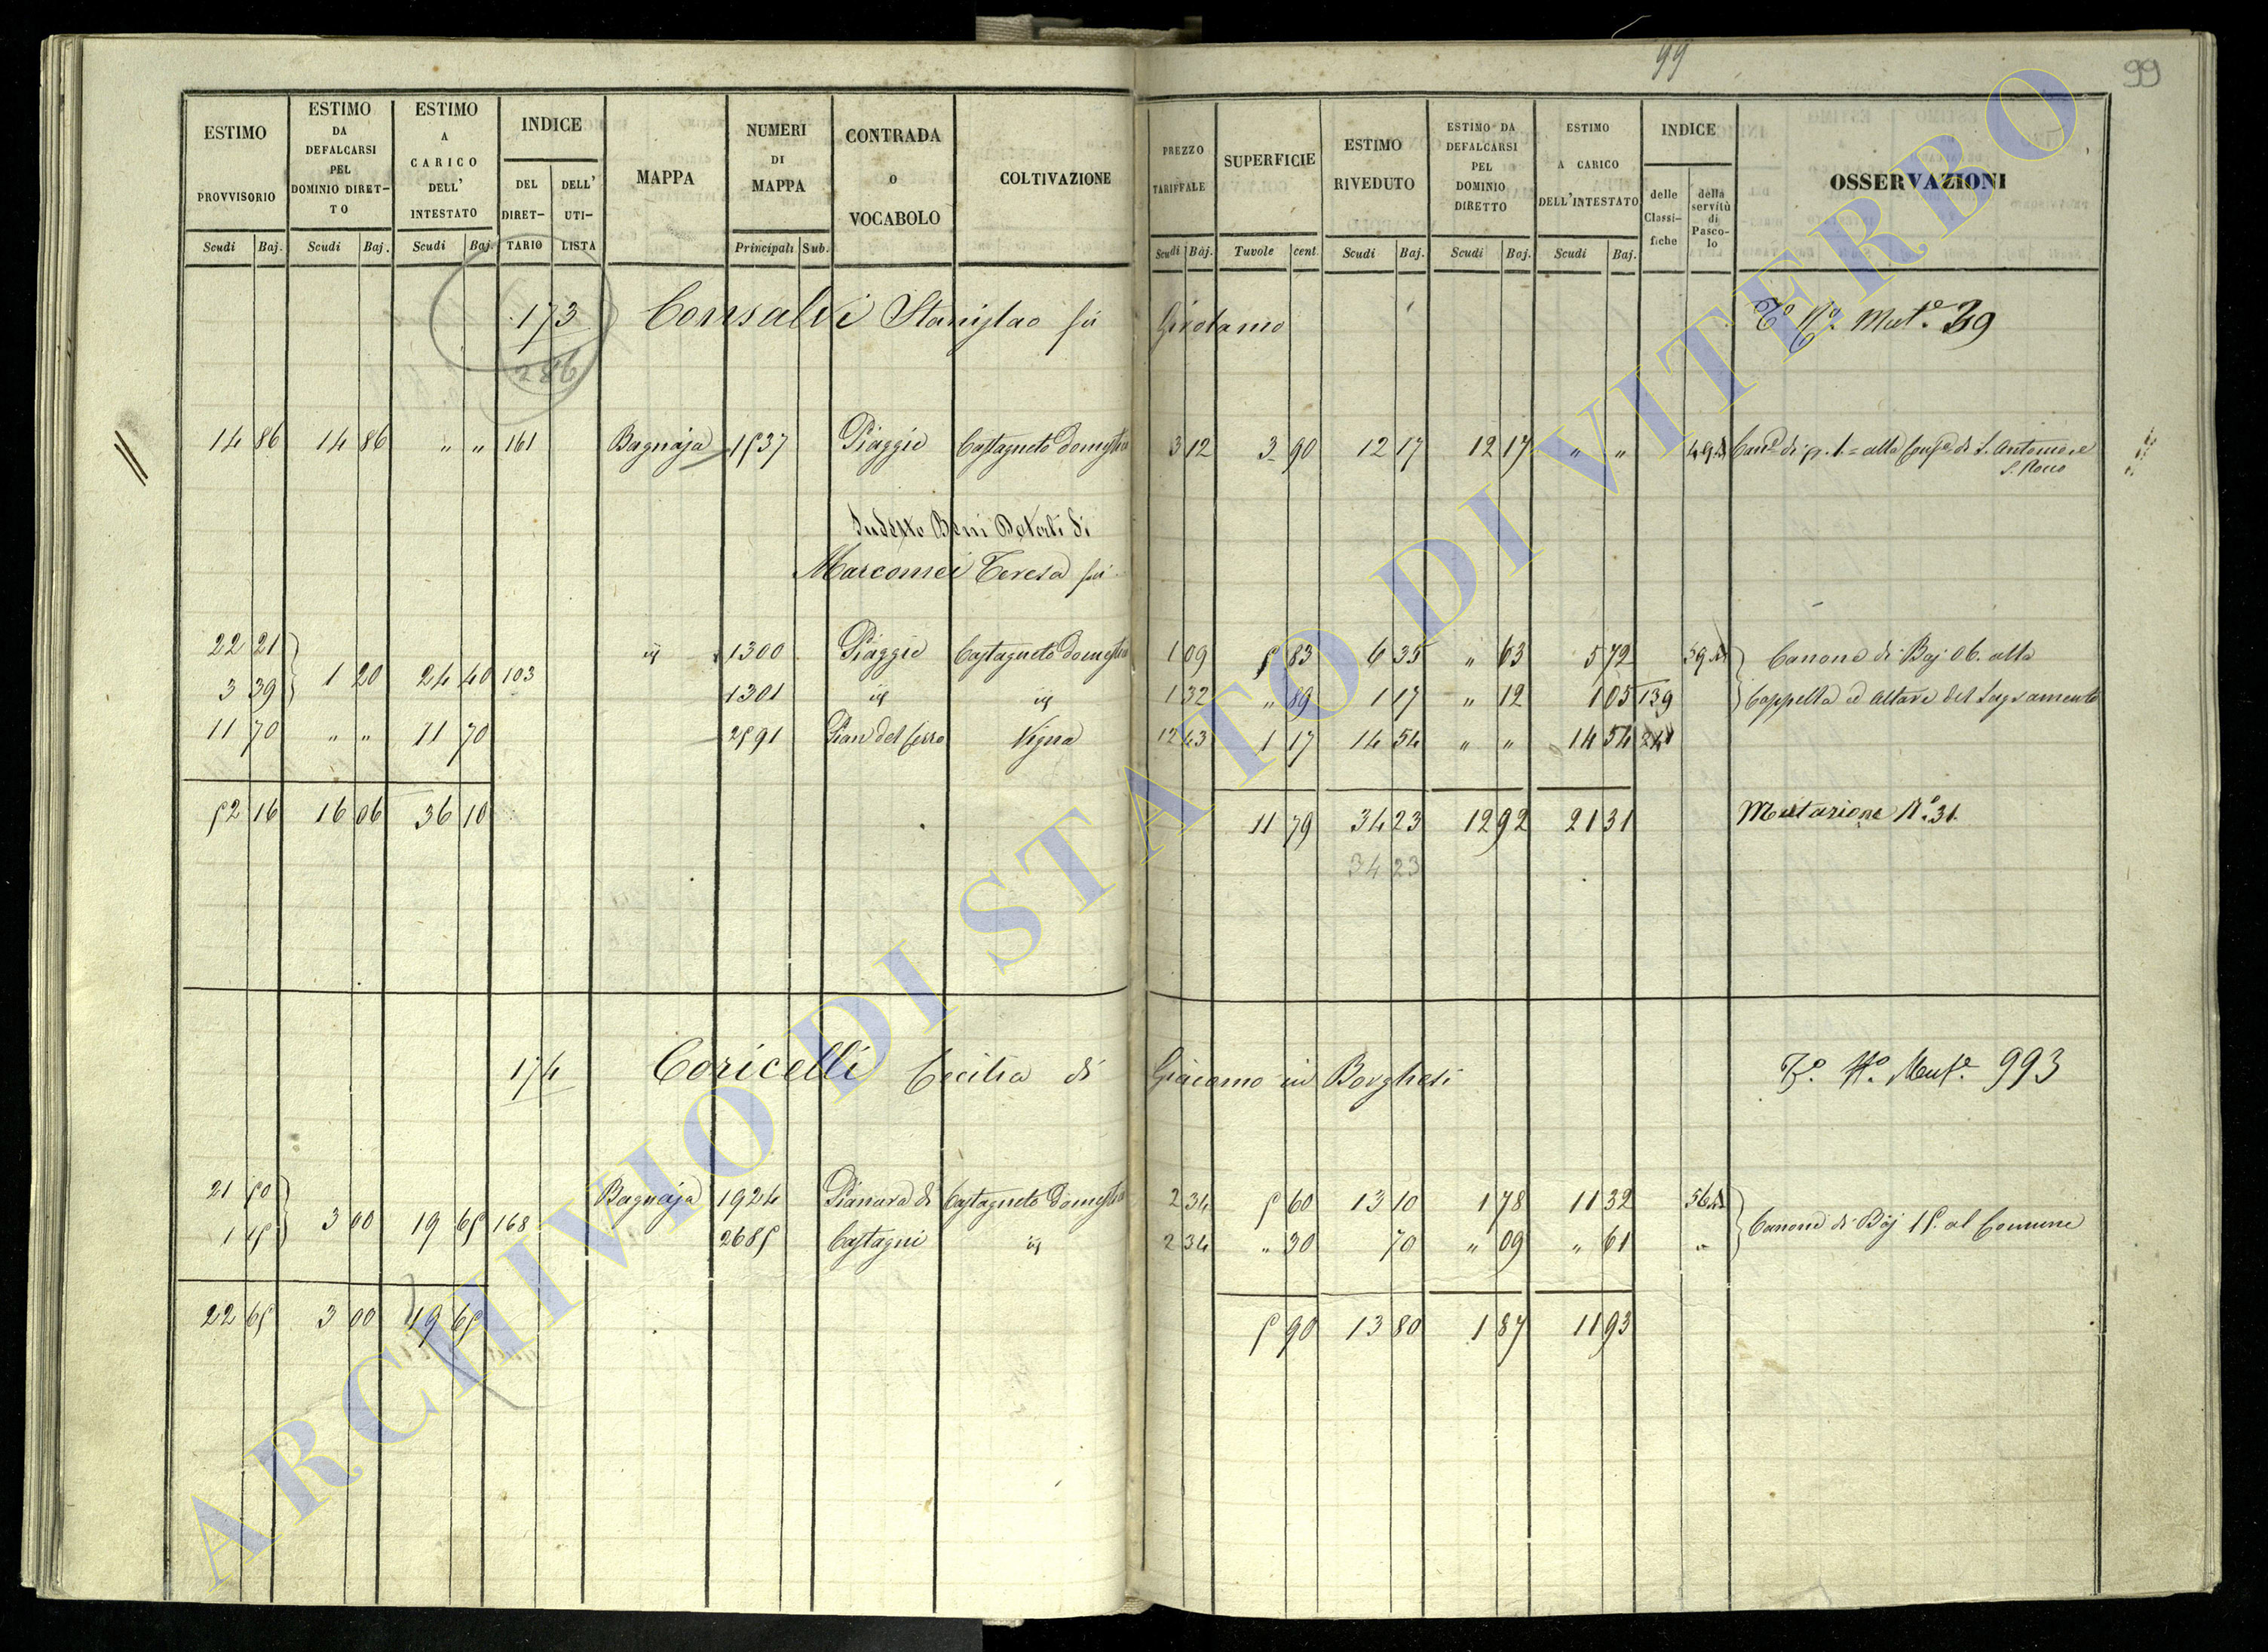 99
99
ESTIMO PROVVISORIO
ESTIMO DA DEFALCARSI PEL DOMINIO DIRET-TO
ESTIMO A CARICO DELL' INTESTATO
INDICE
DEL DIRET-TARIO
DELL' UTI-LISTA
MAPPA
NUMERI DI MAPPA
CONTRADA o VOCABOLO
COLTIVAZIONE
PREZZO TARIFFALE
SUPERFICIE
ESTIMO RIVEDUTO
ESTIMO DA DEFALCARSI PEL DOMINIO DIRETTO
ESTIMO A CARICO DELL'INTESTATO
INDICE
delle Classi-fiche
della servitù di Pasco-lo
OSSERVAZIONI
Scudi Baj. Scudi Baj. Scudi Baj. Principali Sub. Scudi Baj. Tavole cent. Scudi Baj. Scudi Baj. Scudi Baj.
173 Consalvi Stanislao fu Girolamo Mut.e 39
286
14 86 14 86 " " 161 Bagnaja 1537 Piaggie Castagneto Domestico 3 12 3 90 12 17 12 17 " " 49 di p. 1= alla di S. Antonio e
S. Rocco
Sudetto Beni Dotali di
Marconei Teresa fu
22 21 1 20 24 40 103 id 1300 Piaggie Castagneto Domestico 1 09 5 83 6 35 " 63 5 72 59 Canone di Baj 06. alla
3 39 1301 id id 1 32 " 89 1 17 " 12 1 05 139 Cappella ed altare del Sagramento
11 70 " " 11 70 2591 Pian del Cerro Vigna 12 43 1 17 14 54 " " 14 54
52 16 16 06 36 10 11 79 34 23 12 92 21 31 Mutazione N.° 31.
34 23
174 Coricelli Cecilia di Giacomo in Borghesi 993
21 50 3 00 19 65 168 Bagnaja 1924 Pianara di Castagneto Domestico 2 34 5 60 13 10 1 78 11 32 56 Canone di Baj 15. al Comune
1 15 2685 Castagni id 2 34 " 30 70 " 09 " 61 "
22 65 3 00 19 65 5 90 13 80 1 87 11 93
ARCHIVIO DI STATO DI VITERBO